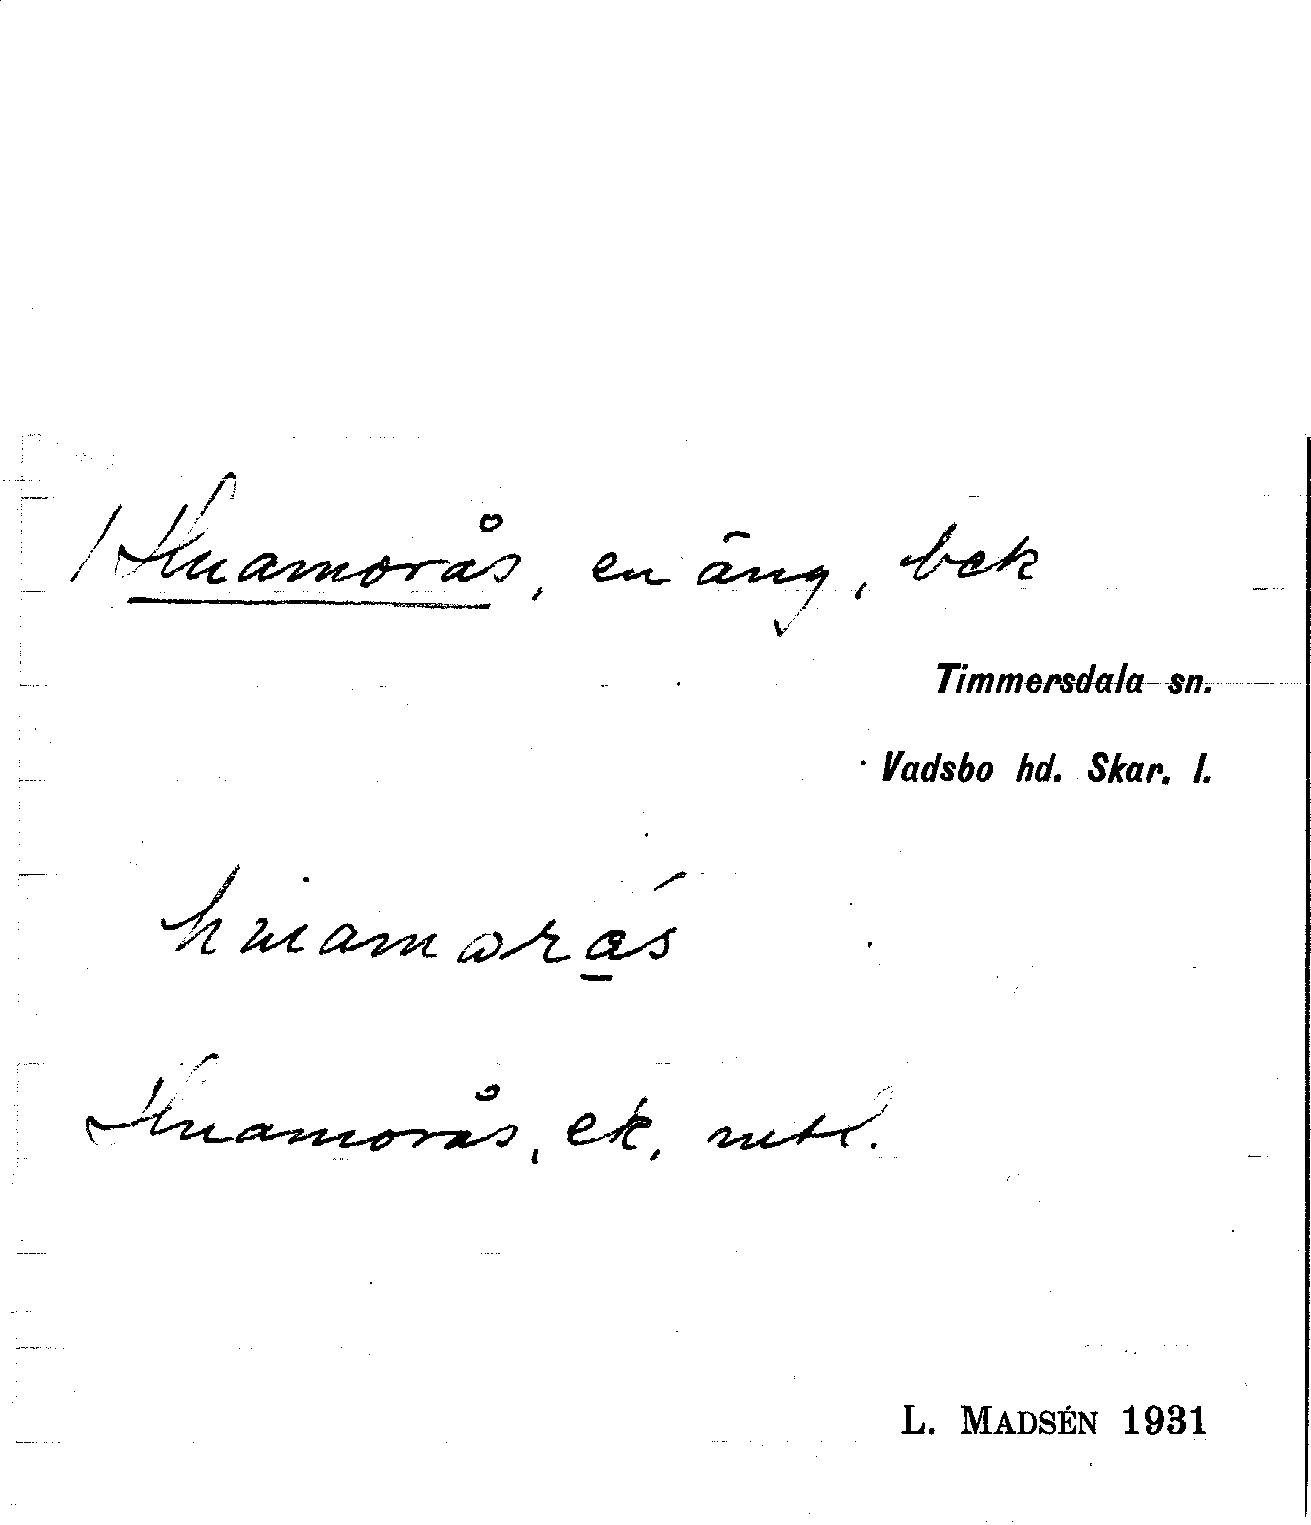 / Huamorås, en äng, bek
Timmersdala sn.
Vadsbo hd. Skar. l.
Huamorås, ek,
L. MADSÉN 1931